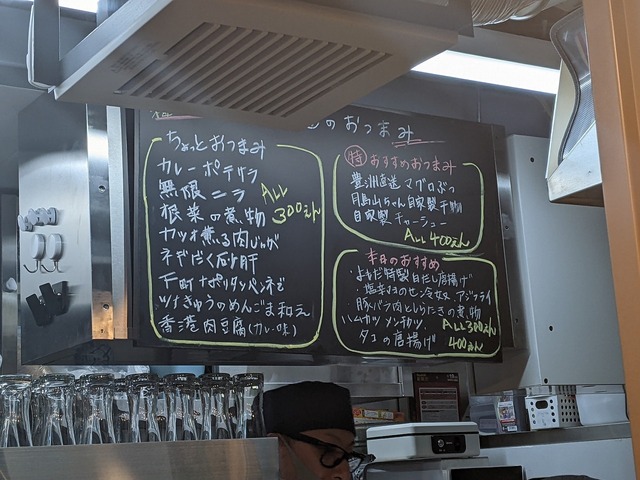 のおつまみ
ちょっとおつまみ
カレーポテサラ
無限ニラ
根菜の煮物
ALL
300えん
カツオ薫る肉じゃが
ネギだく砂肝
下町ナポリタンペンネで
ツナきゅうのめんごま和え
香港肉豆腐(カレー味)
特 おすすめおつまみ
豊洲直送マグロぶつ
自家製干物
自家製チャーシュー
ALL 400えん
本日のおすすめ
・よもだ特製 白だし唐揚げ
・塩辛のせ冷奴 アジフライ
・豚バラ肉としらたきの煮物
ハムカツ メンチカツ
ALL300えん
タコの唐揚げ 400えん